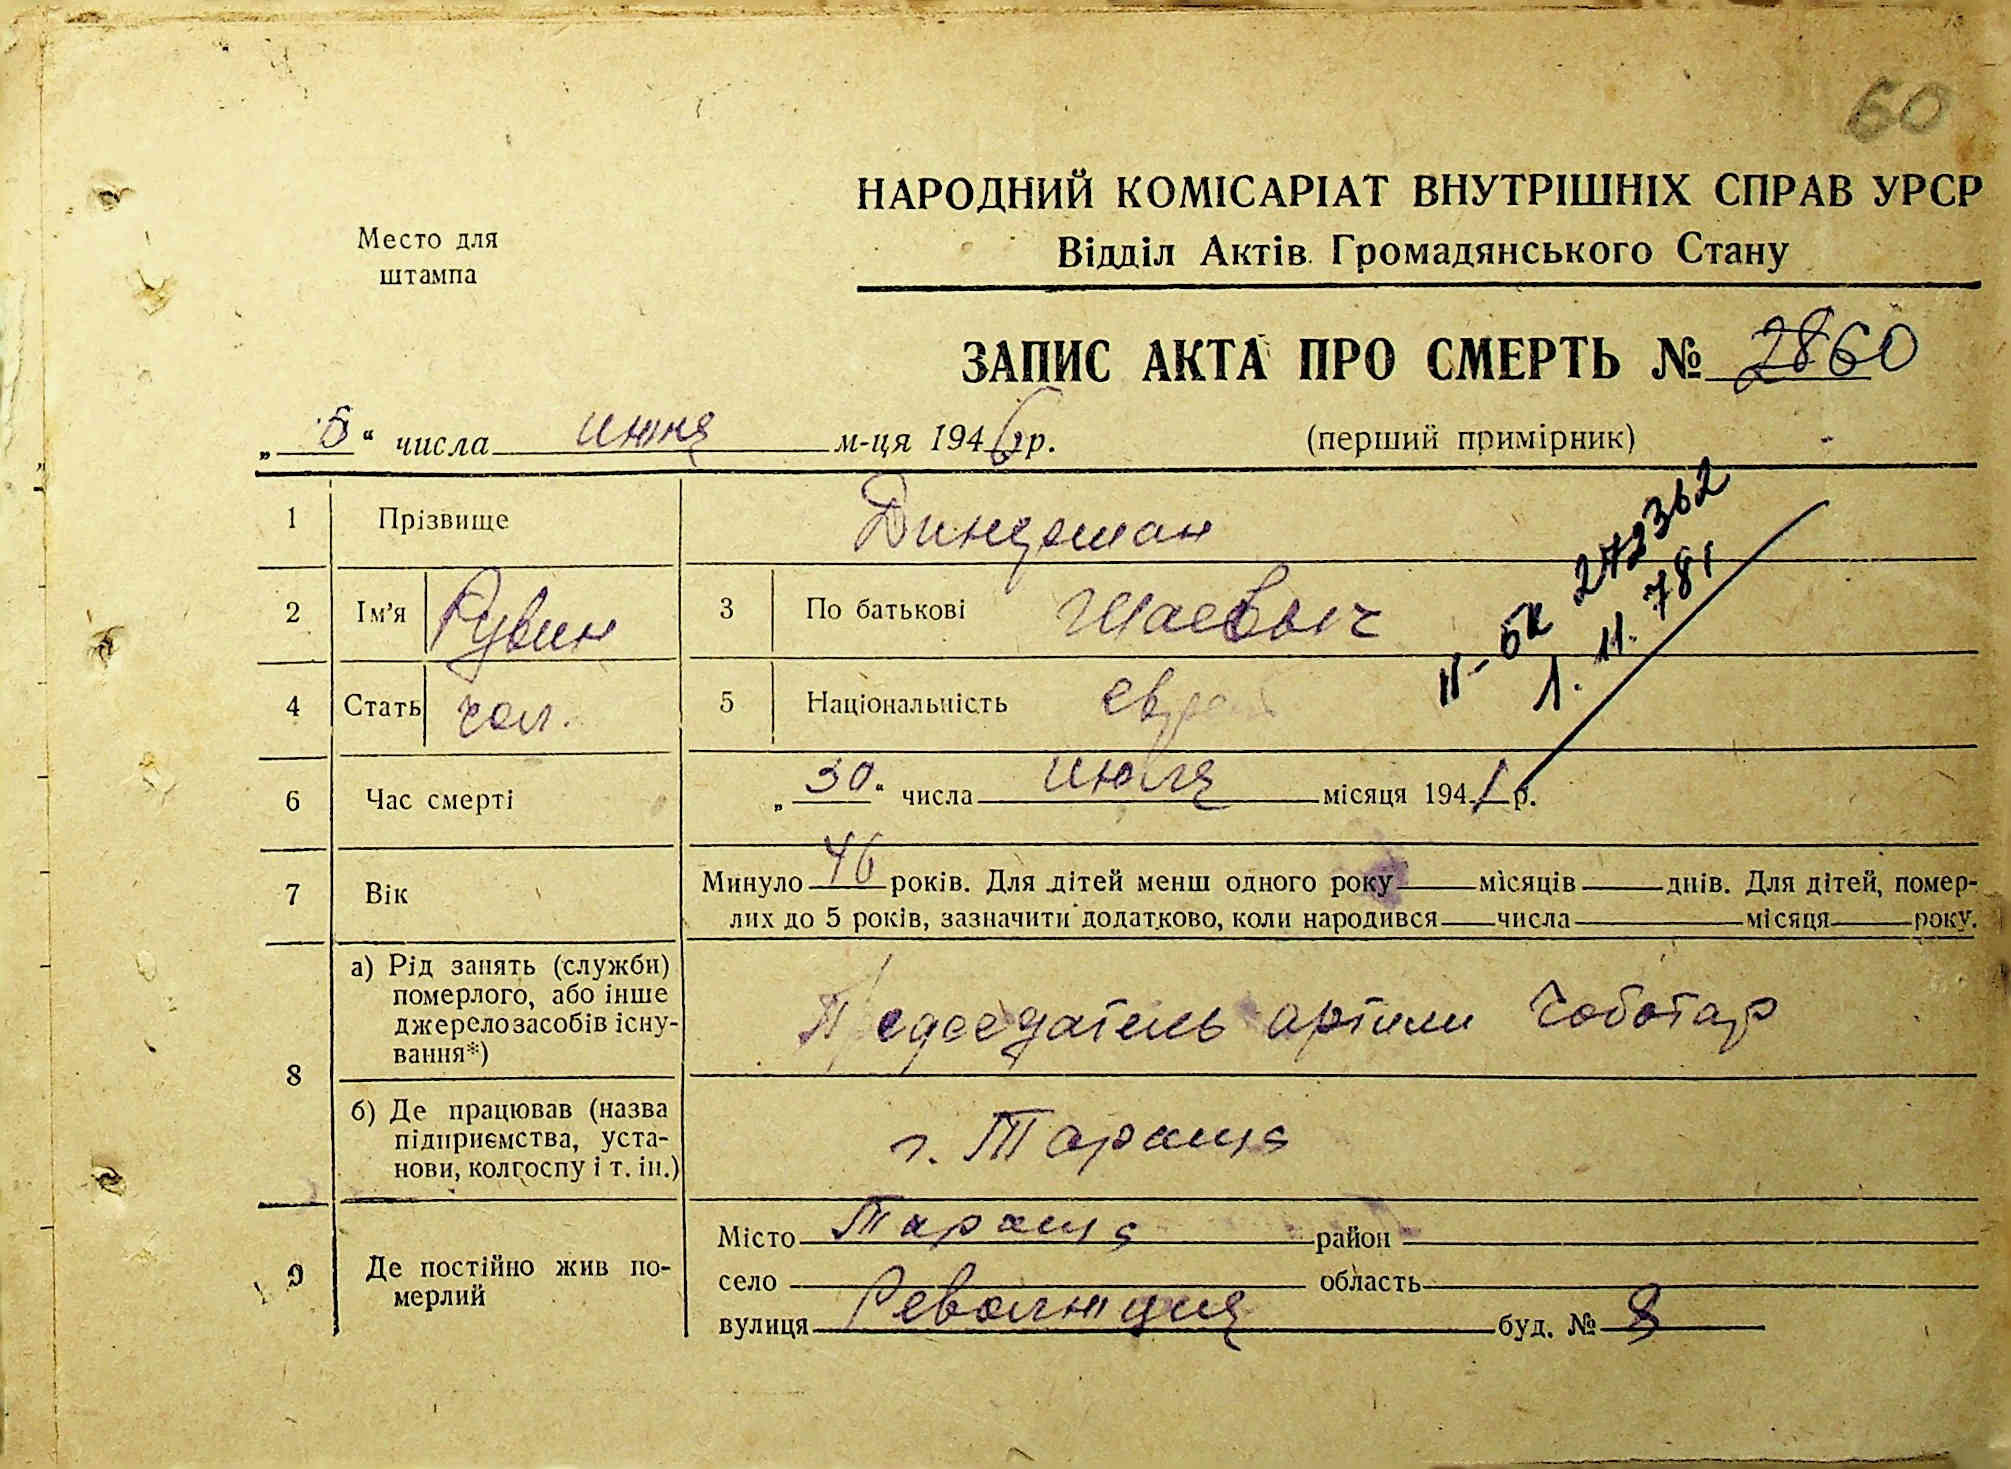 60
НАРОДНИЙ КОМІСАРІАТ ВНУТРІШНІХ СПРАВ УРСР
Место для
штампа
Відділ Актів Громадянського Стану
ЗАПИС АКТА ПРО СМЕРТЬ № 2860
„ 5 “ числа июня м-ця 1946 р. (перший примірник)
1 Прізвище Диндеман
2 Ім’я Рувин 3 По батькові Шаевыч
4 Стать чол. 5 Національність еврей
II-БК 272362
1. 11. 78г
6 Час смерті „ 30 “ числа июля місяця 1941 р.
7 Вік Минуло 46 років. Для дітей менш одного року місяців днів. Для дітей, помер-
лих до 5 років, зазначити додатково, коли народився числа місяця року.
8 а) Рід занять (служби)
померлого, або інше
джерело засобів існу-
вання*)
Педседатель артили Чоботар
б) Де працював (назва
підприємства, уста-
нови, колгоспу і т. ін.)
г. Тараща
9 Де постійно жив по-
мерлий
Місто Тараща район
село область
вулиця Революция буд. № 8